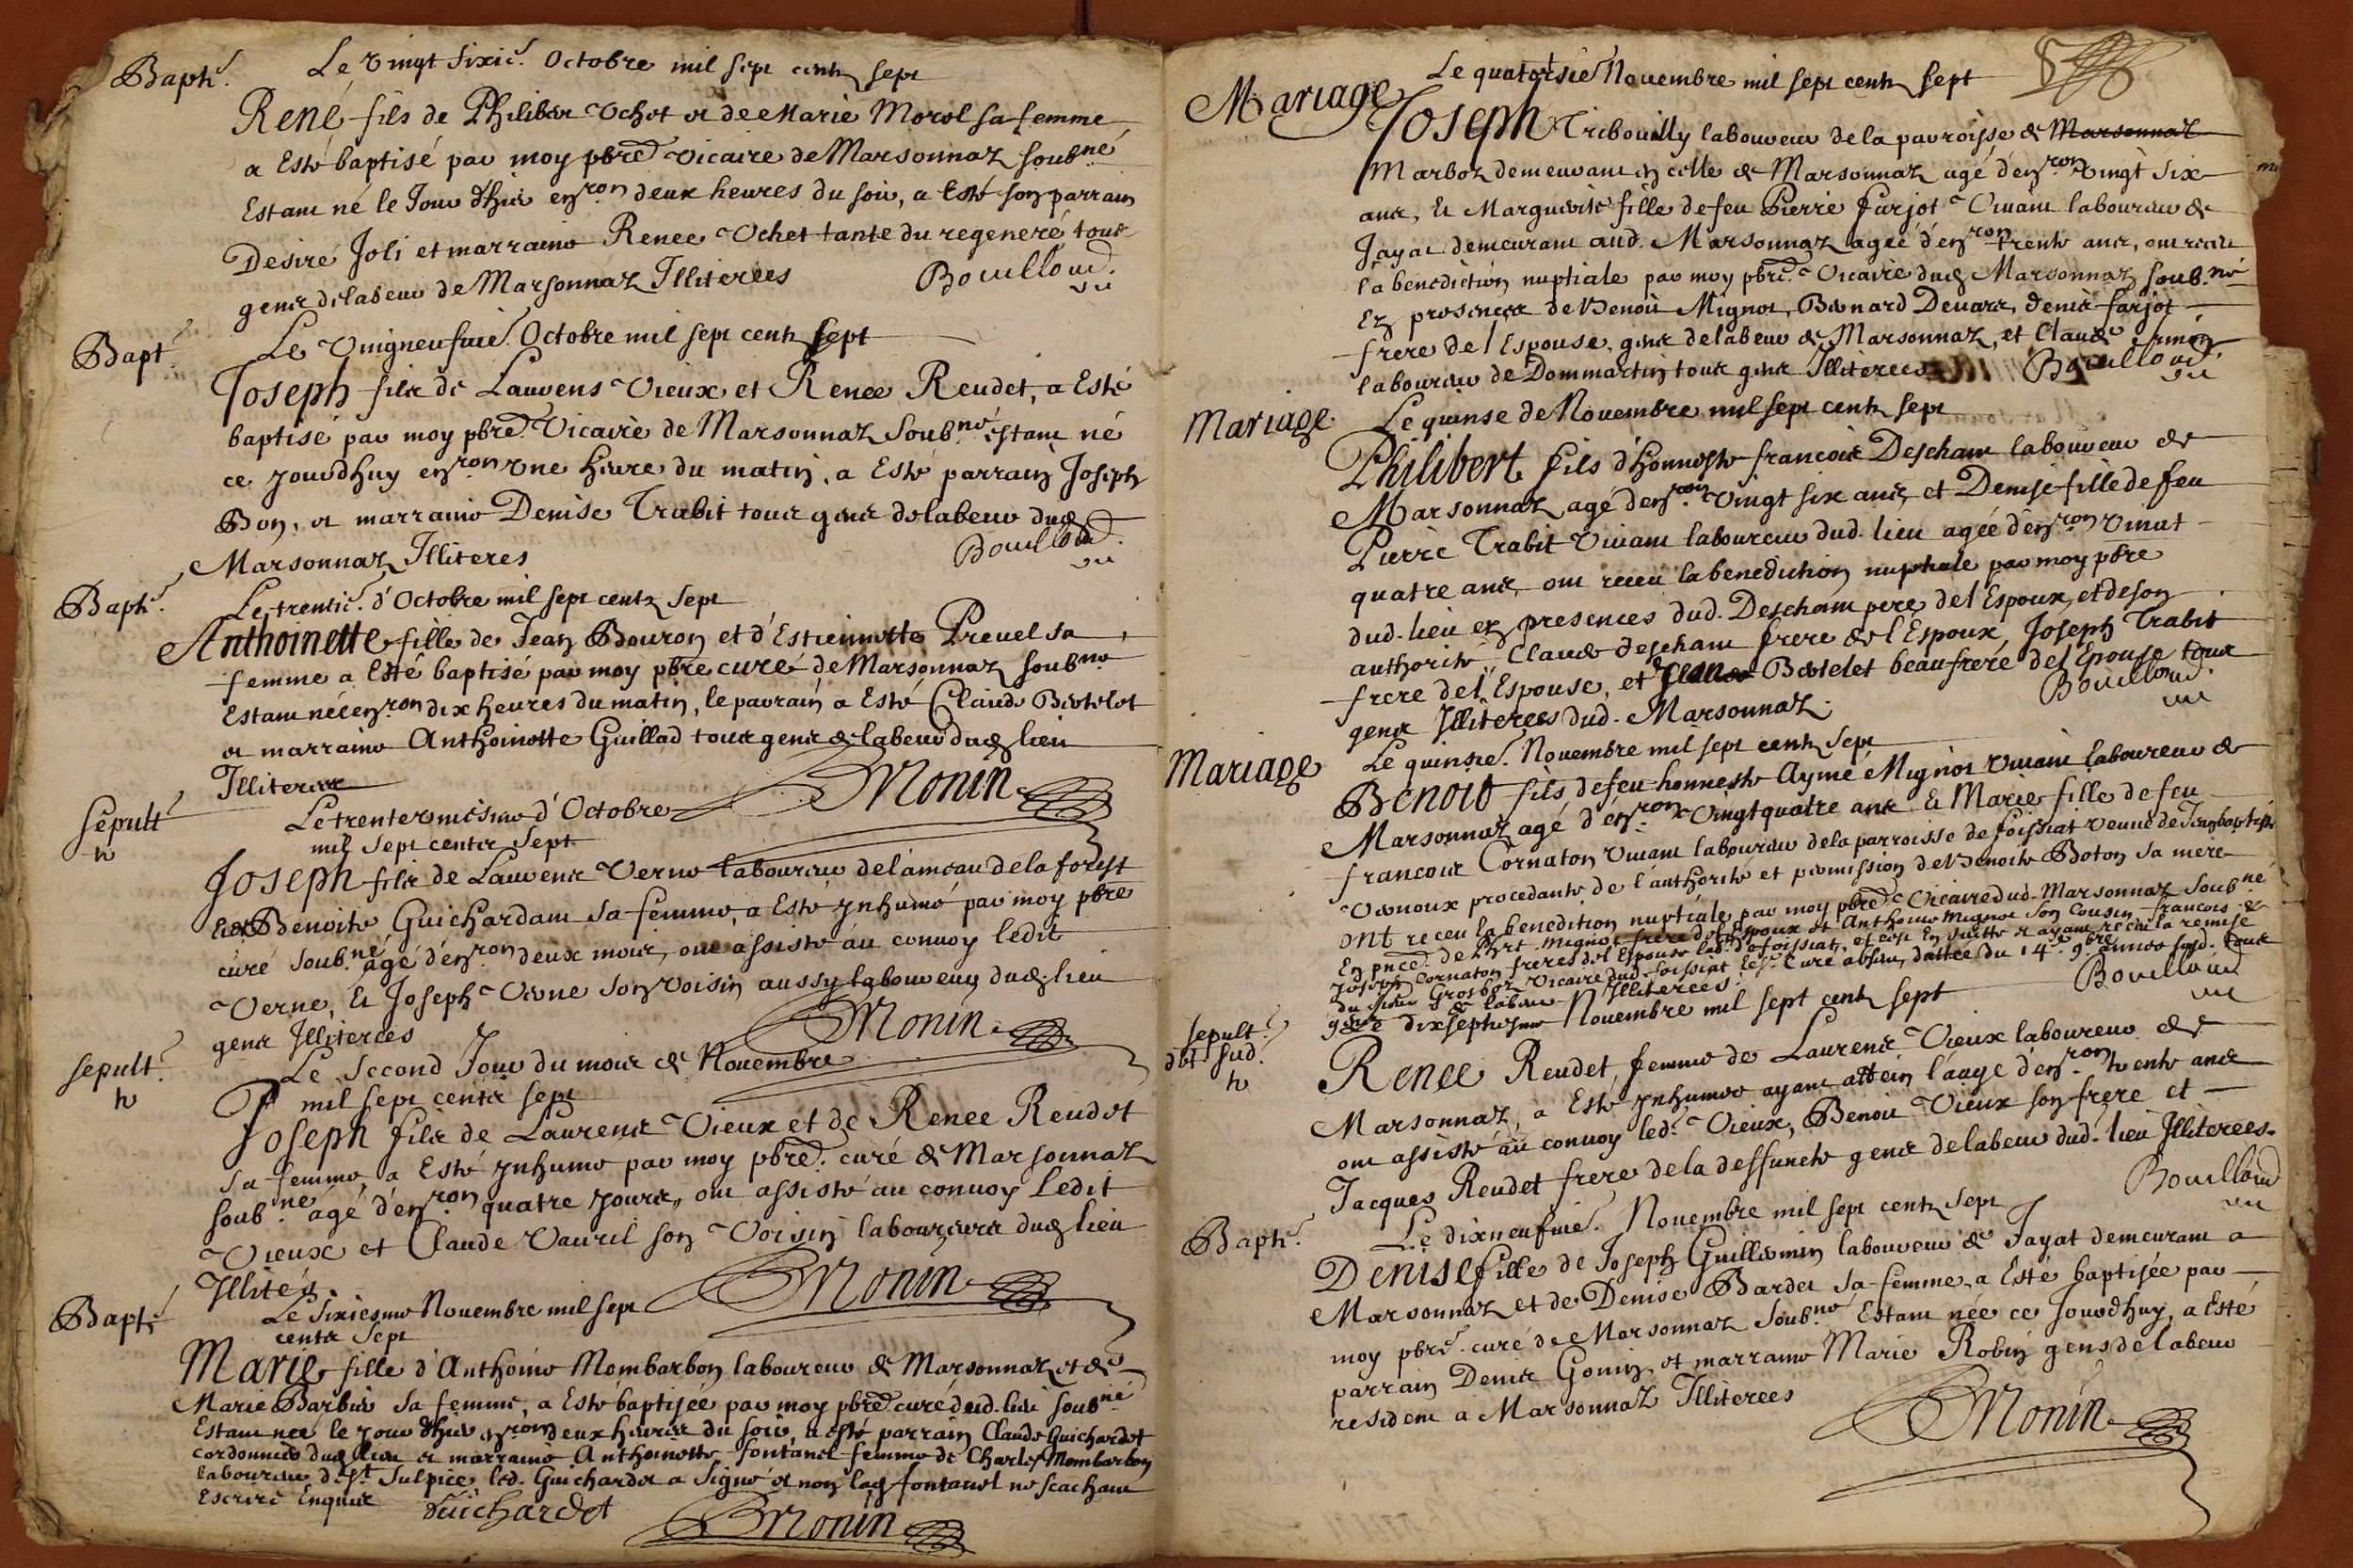 Baph.
Le vingt sixie. Octobre mil sept cents sept
René fils de Philiber Vochot et de Marie Morel sa femme
a Esté baptisé par moy pbre Vicaire de Marsonnaz soubné
Estant né le Jour d'hier environ deux heures du soir, a Esté son parrain
Desiré Joli et marraine Renee Vochet tante du regeneré tout
gens de labeur de Marsonnaz Illiterees Bouilloud
vic
Bapt.
Le Vingneufuie. Octobre mil sept cents sept
Joseph fils de Laurens Vieux et Renee Reudet, a Esté
baptisé par moy pbre Vicaire de Marsonnaz Soubné estant né
ce jourdhuy environ une heure du matin, a Esté parrain Joseph
Bon, et marraine Denise Trabit tous gens de labeur dud
Marsonnaz Illiteres Bouilloud
vic
Baph.
Le trentie. d'Octobre mil sept cents sept
Anthoinette fille de Jean Bouron et d'Estiennette Prevel sa
femme a Esté baptisé par moy pbre curé de Marsonnaz soubné
Estant née environ dix heures du matin, le parrain a Esté Claude Bertelet
et marraine Anthoinette Guillad tous gens de labeur dud lieu
Illiteres Monin
Sepult
Le trenteuniesme d'Octobre
mil sept cents sept
Joseph fils de Laurens Verne laboureur de lameau de la forest
Et Benoite Guichardam sa femme, a Esté ynhumé par moy pbre
curé soubné agé d'environ deux mois, ont assisté au convoy ledit
Verne, Et Joseph Verne son voisin aussy laboureur dud lieu
gens Illiterees Monin
sepult.
Le Second Jour du mois de Novembre
mil sept cents sept
Joseph fils de Laurens Vieux et de Renee Reudet
sa femme, a Esté ynhumé par moy pbre. curé de Marsonnaz
soubné agé d'environ quatre jours, ont assisté au convoy Ledit
Vieux et Claude Vauril son Voisin laboureurs dud lieu
Illités Monin
Bapt.
Le Sixiesme Novembre mil sept
cents sept
Marie fille d'Anthoine Mombarbon laboureur de Marsonnaz et de
Marie Barbier sa femme, a Esté baptisée par moy pbre curé dud. lieu soubné
Estant née le jour d'hier environ deux heures du soir, a esté parrain Claude Guichardet
cordonnier dud lieu et marraine Anthoinette fontanel femme de Charles Mombarbon
laboureur de St Sulpice led. Guichardet a signé et non lad fontanel ne scachant
Escrire Enquise Guichardet
Monin
Mariage
Le quatorsie Novembre mil sept cents sept
Joseph Tribouilly laboureur de la parroisse de Marsonnaz
Marboz demeurant en celle de Marsonnaz agé d'environ vingt six
ans, Et Marguerite fille de feu Pierre Furjot Vivant laboureur de
Jayat demeurant aud. Marsonnaz agée d'environ trente ans, ont receu
la benediction nuptiale par moy pbre Vicaire dud Marsonnaz soubné
En presences de Benoit Mignot, Bernard Devars, denis farjot
frere de l'Espouse, gens de labeur de Marsonnaz, et Claude
laboureur de Dommartin tous gens Illiterees Bouilloud
vic
Mariage
Le quinse de Novembre mil sept cents sept
Philibert fils d'honneste francois Descham laboureur de
Marsonnaz agé d'environ vingt six ans, et Denise fille de feu
Pierre Trabit Vivant laboureur dud. lieu agée d'environ vint
quatre ans, ont receu la benediction nuptiale par moy pbre
dud. lieu ez presences dud. Descham pere de l'Espoux, et de son
authorité, Claude descham frere de l'Espoux, Joseph Trabit
frere de l'Espouse, et Bertelet beaufrere de l'Epouse tous
gens Illiterees dud. Marsonnaz. Bouilloud
vic
Mariage
Le quinsie. Novembre mil sept cents sept
Benoit fils de feu honneste Aymé Mignot vivant laboureur de
Marsonnaz agé d'environ vingtquatre ans Et Marie fille de feu
francois Cornaton vivant laboureur de la parroisse de foissiat veuve de Jeanbaptiste
Vernoux procedante de l'authorité et permission de Benoite Boton sa mere
ont receu la benedition nuptiale par moy pbre Vicaire dud. Marsonnaz soubné
En pnce de Phrt Mignot frere de l'Espoux et Anthoine Mignot son Cousin francois &
Joseph Cornaton freres de l'Espouse lab. de foissiat, et ce En suitte et ayant receu la remise
du Sieur Grosboz Vicaire dud foissiat le sr. Curé absent, dattée du 14e 9bre année sud. tous
gens de labeur Illiterees. Bouilloud
vic
sepult.
Le dixseptiesme Novembre mil sept cents sept
Renee Reudet, femme de Laurens Vieux laboureur de
Marsonnaz, a Esté ynhumée ayant attein l'aage d'environ trente ans
ont assisté au convoy led. Vieux, Benoit Vieux son frere et
Jacques Reudet frere de la deffuncte gens de labeur dud. lieu Illiterees.
Bouilloud
vic
Baph.
Le dixneufuie. Novembre mil sept cents sept
Denise fille de Joseph Guillermin laboureur de Jayat demeurant a
Marsonnaz et de Denise Bardet sa femme, a Esté baptisée par
moy pbre. curé de Marsonnaz soubné Estant née ce Jourdhuy, a Esté
parrain Denis Gonin, et marraine Marie Robin gens de labeur
resident a Marsonnaz Illiterees Monin